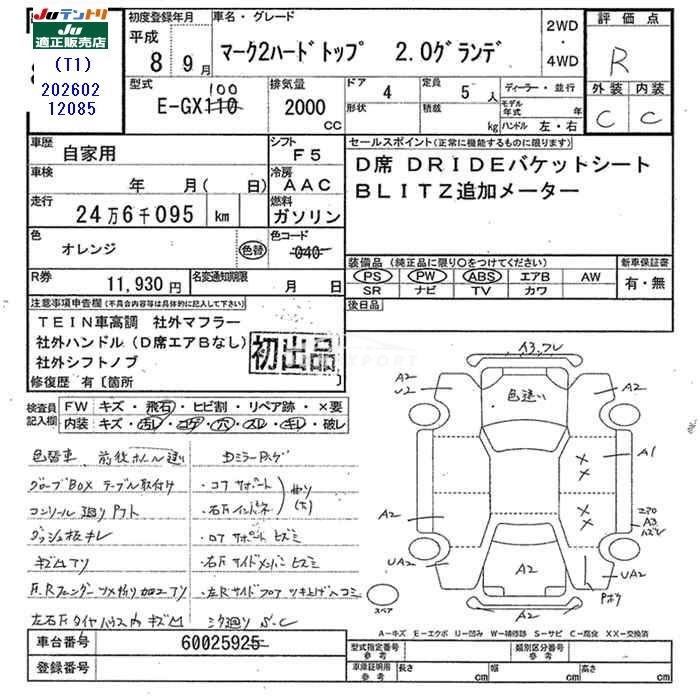 JUテントリ
JU適正販売店
(T1)
202602
12085
初度登録年月
平成
8 9月
車名・グレード
マーク2ハードトップ 2.0グランデ
2WD
・
4WD
評価点
R
外装 内装
C C
型式
100
E-GX110
排気量
2000
cc
ドア 4
形状
定員 5人
積載 kg
ディーラー・並行
モデル年式 年
ハンドル 左・右
車歴
自家用
シフト
F5
車検
年 月( 日)
冷房
AAC
走行
24万6千095 km
燃料
ガソリン
色
オレンジ
色替
色コード
040
R券
11,930円
名変通知期限
月 日
セールスポイント(正常に機能するものに限ります)
D席 DRIDEバケットシート
BLITZ追加メーター
装備品(純正品に限り○をつけてください)
PS PW ABS エアB AW
SR ナビ TV カワ
新車保証書
有・無
後日品
注意事項申告欄(不具合内容等は具体的に記入して下さい)
TEIN車高調 社外マフラー
社外ハンドル(D席エアBなし)
社外シフトノブ
初出品
修復歴 有〔箇所 〕
検査員記入欄
FW キズ・飛石・ヒビ割・リペア跡・×要
内装 キズ・汚レ・コゲ・穴・スレ・キレ・破レ
色替車 前後ホイール違い
グローブBOX テーブル取付け
コンソール廻り
ダッシュ板キレ
キズ凹アリ
F.Rフェンダー ツメ折り加工アリ
左右F タイヤハウス内 キズ凹
Dミラー
・コアサポート
・右Fインパネ
曲り
・ロアサポートヒズミ
・右FサイドメンバーヒズミA
・左RサイドフロアツキLげヘコミ
下廻り S・C
A3,フレ
A2
U2
色違い
A2
A1
A2
A3
ハズレ
UA2
A2
UA2
A2
スペア
A−キズ E−エクボ U−凹み W−補修跡 S−サビ C−腐食 XX−交換済
車台番号
60025925
登録番号
型式指定番号
参考
類別区分番号
参考
車庫証明用
参考
長さ cm
幅 cm
高さ cm